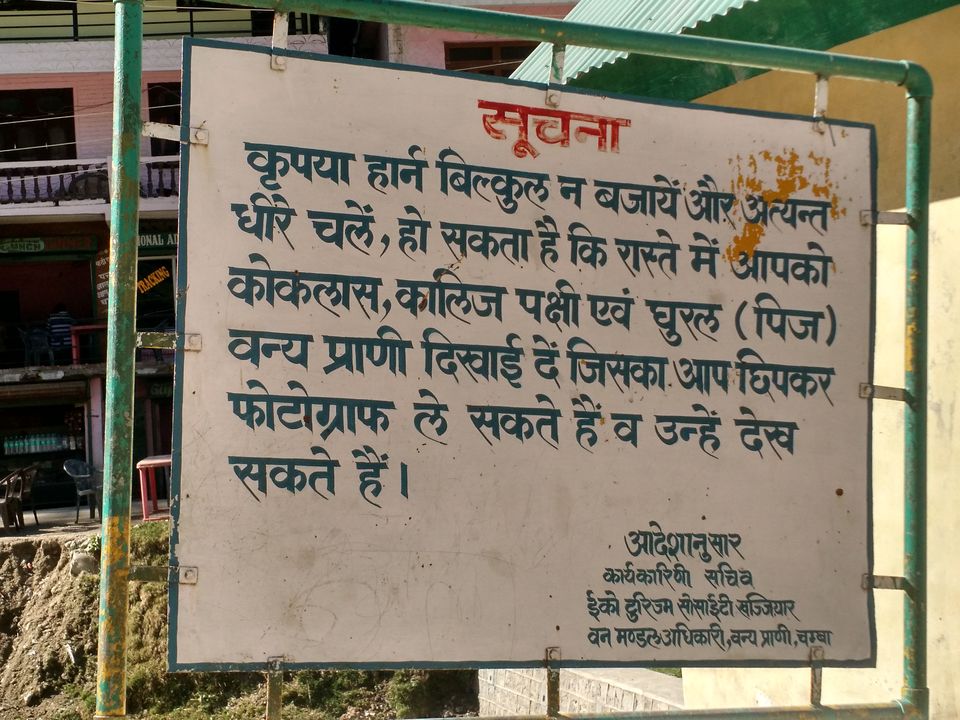 सूचना
कृपया हार्न बिल्कुल न बजायें और अत्यन्त
धीरे चलें, हो सकता है कि रास्ते में आपको
कोकलास, कालिज पक्षी एवं घुरल (पिज)
वन्य प्राणी दिखाई दें जिसका आप छिपकर
फोटोग्राफ ले सकते हैं व उन्हें देख
सकते हैं।
आदेशानुसार
कार्यकारिणी सचिव
ईको टुरिज्म सोसाईटी खज्जियार
वन मण्डल अधिकारी, वन्य प्राणी, चम्बा
TRACKING